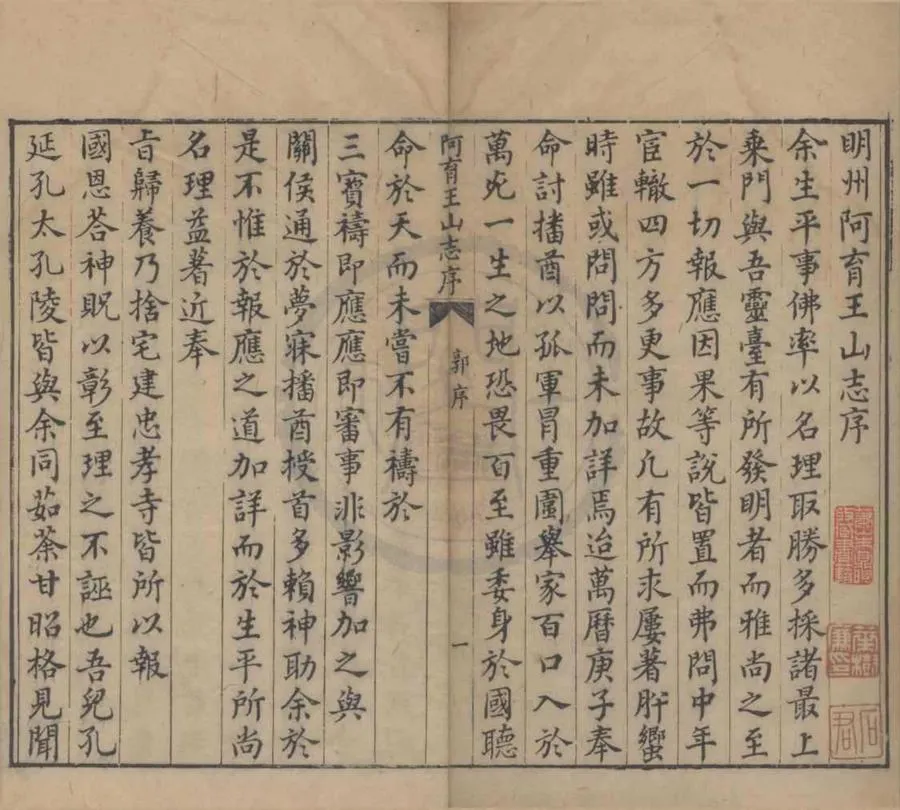 明州阿育王山志序
余生平事佛率以名理取勝多採諸最上
乘門與吾靈臺有所發明者而雅尚之至
於一切報應因果等說皆置而弗問中年
宦轍四方多更事故凢有所求屢著肸蠁
時雖或問問而未加詳焉迨萬曆庚子奉
命討播酋以孤軍冐重圍舉家百口入於
萬死一生之地恐畏百至雖委身於國聽
阿育王山志序 郭序 一
命於天而未嘗不有禱於
三寶禱即應應即審事非影響加之與
關侯通於夢寐播酋授首多賴神助余於
是不惟於報應之道加詳而於生平所尚
名理益著近奉
旨歸養乃捨宅建忠孝寺皆所以報
國恩荅神貺以彰至理之不誣也吾兒孔
延孔太孔陵皆與余同茹荼甘昭格見聞